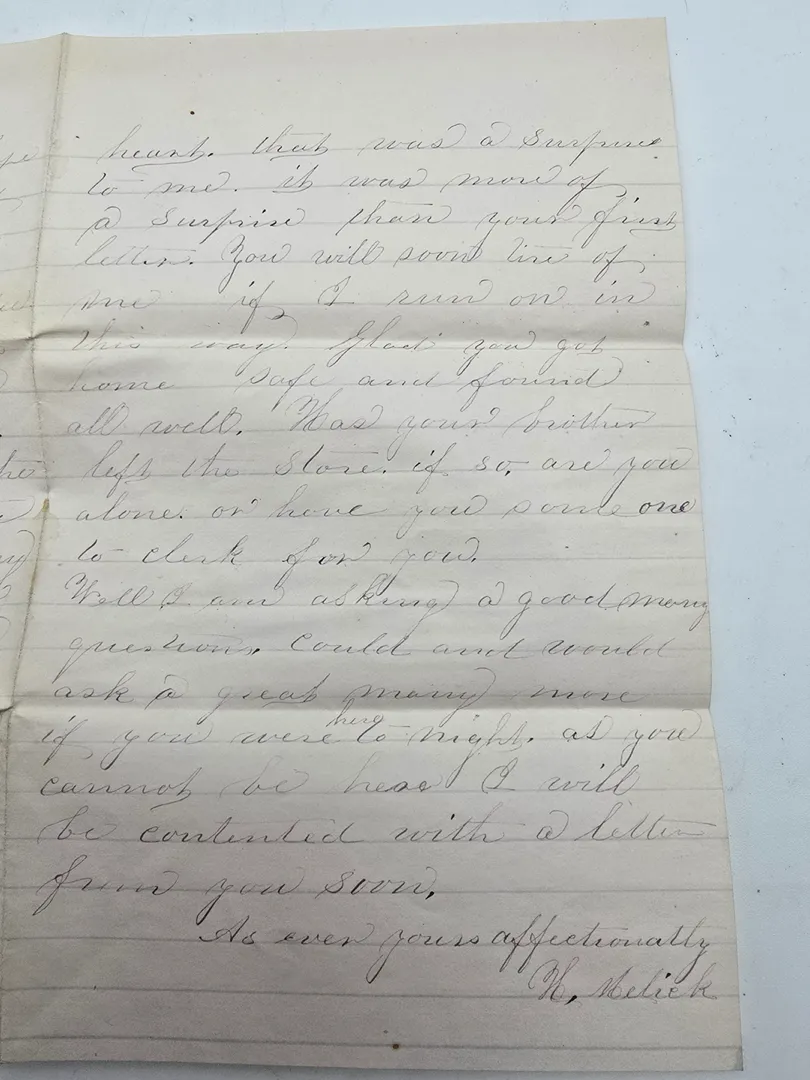 heart. that was a surprise
to me. it was more of
a surprise than your first
letter. You will soon tire of
me if I run on in
this way. Glad you got
home safe and found
all well. Has your brother
left the store. if so. are you
alone. or have you some one
to clerk for you.
Well I am asking a good many
questions. could and would
ask a great many more
if you were here to night. as you
cannot be here I will
be contented with a letter
from you soon.
As ever yours affectionatly
H. Melick